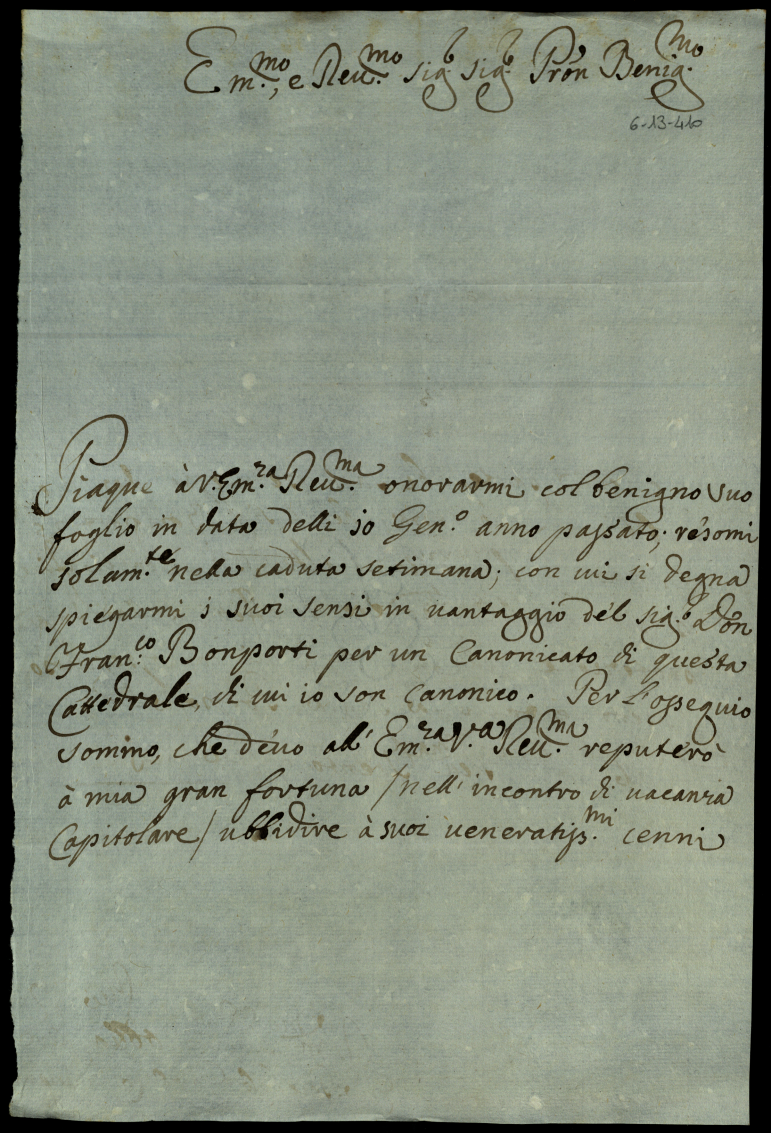 Em.mo, e Reu.mo sig.r sig.r Prōn Benig.mo
6-13-410
Piaque à V. Em.za Reu.ma onorarmi col benigno suo
foglio in data delli 30 Gen.o anno passato; résomi
solam.te nella caduta setimana; con cui si degna
spiegarmi i suoi sensi in uantaggio del sig.r Dōn
Fran.co Bonporti per un Canonicato di questa
Cattedrale, di cui io son canonico. Per l'ossequio
somino, che déuo all' Em.za V.a Reu.ma reputerò
à mia gran fortuna / nell' incontro di uacanza
Capitolare / ubbidire à suoi ueneratiss.mi cenni